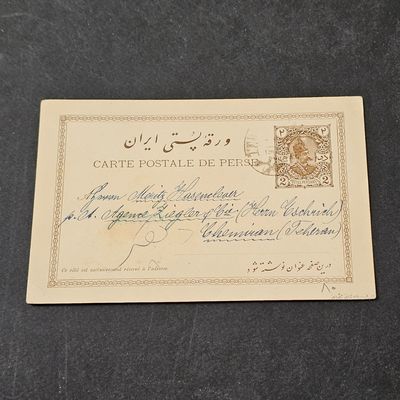 ورقهٔ پستی ایران
CARTE POSTALE DE PERSE
۲ ۲
2 2
Herrn Moritz Hasenclever
p. A. Agence Ziegler & Cie (Herrn Eschrich)
Chemiran (Teheran)
Ce côté est exclusivement réservé à l'adresse
درین صفحه عنوان نوشته شود